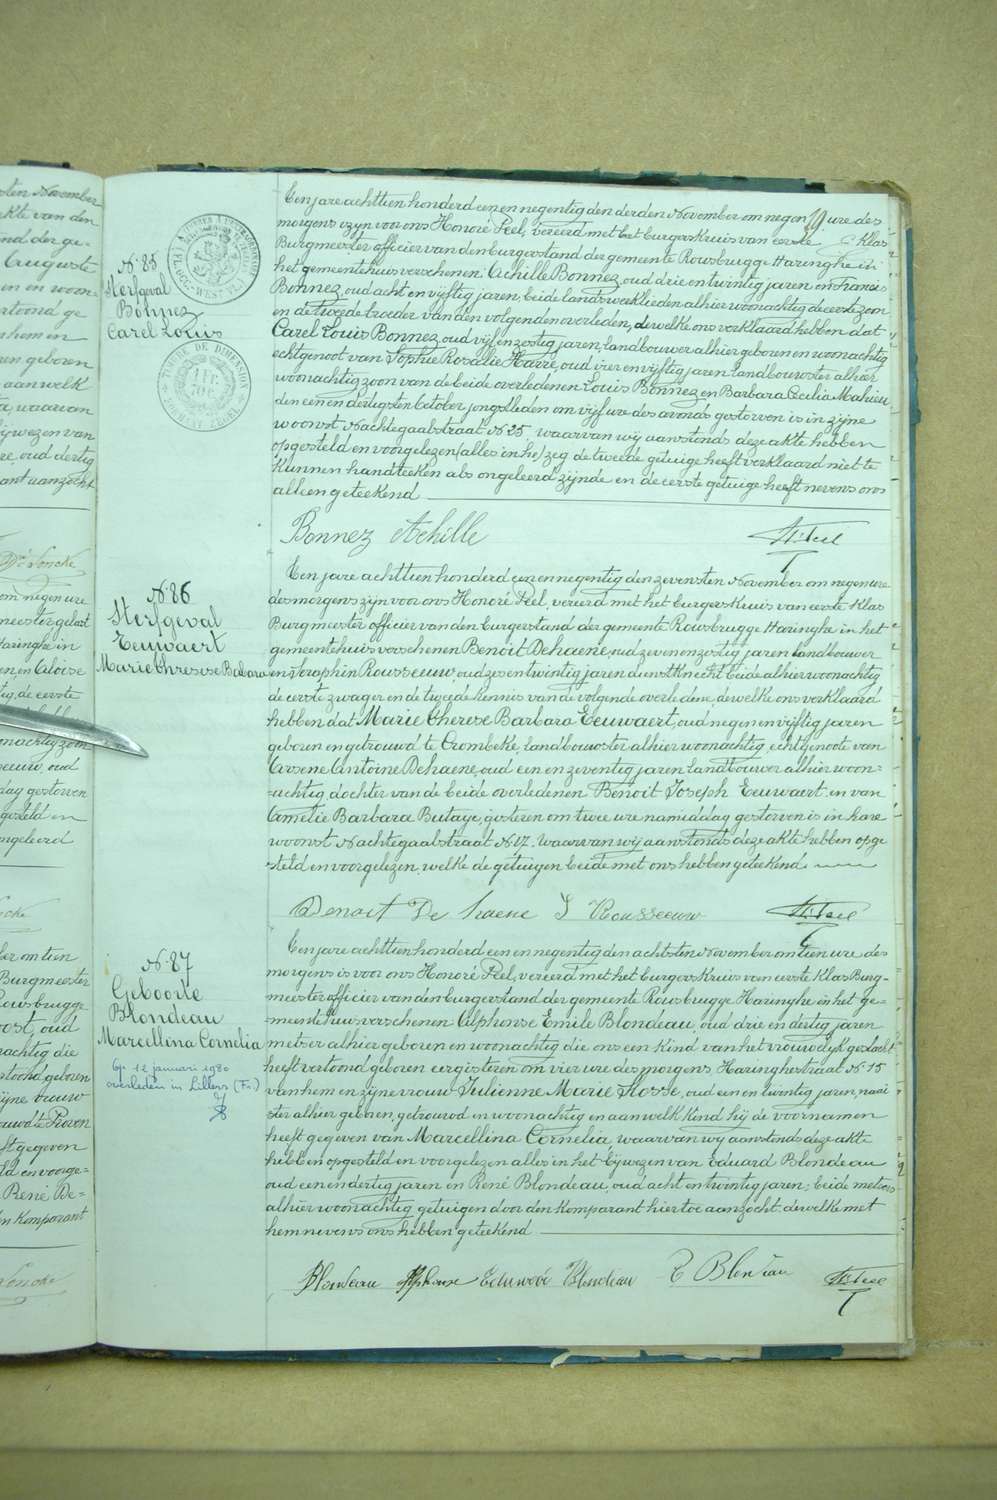 19
N. 85
Sterfgeval
Bonnez
Carel Louis
Een jare achttien honderd een en negentig den derden November om negen ure des
morgens zijn voor ons Honoré Peel, vereerd met het burgerskruis van eerste Klas
Burgmeester officier van den burgerstand der gemeente Rousbrugge Haringhe in
het gemeentehuis verschenen: Achille Bonnez, oud drie en twintig jaren en Francis
Bonnez, oud acht en vijftig jaren, beide landswerklieden alhier woonachtig de eerste zoon
en de tweede broeder van den volgenden overleden, dewelke ons verklaard hebben dat
Carel Louis Bonnez, oud vijf en zestig jaren, landbouwer alhier geboren en woonachtig
echtgenoot van Sophie Rosalie Harre, oud vier en vijftig jaren landbouwster alhier
woonachtig zoon van de beide overledenen Louis Bonnez en Barbara Cecilia Mahieu
den een en dertigsten October jongstleden om vijf ure des avonds gestorven is in zijne
woonst Nachtegaalstraat N. 25 waarvan wij aanstonds deze akte hebben
opgesteld en voorgelezen (alles in he) zeg de tweede getuige heeft verklaard niet te
kunnen handteeken als ongeleerd zijnde en de eerste getuige heeft nevens ons
alleen geteekend
Bonnez Achille H. Peel
N. 86
Sterfgeval
Eeuwaert
Marie Therese Babara
Een jare achttien honderd een en negentig den zevensten November om negen ure
des morgens zijn voor ons Honoré Peel, vereerd met het burgerskruis van eerste Klas
Burgmeester officier van den burgerstand der gemeente Rousbrugge Haringhe in het
gemeentehuis verschenen Benoit Dehaene, oud zeven en zestig jaren landbouwer
en Seraphin Rousseeuw, oud zes en twintig jaren dienstknecht beide alhier woonachtig
de eerste zwager en de tweede kennis van de volgende overledene, dewelke ons verklaard
hebben dat Marie Therese Barbara Eeuwaert, oud negen en vijftig jaren
geboren en getrouwd te Crombeke, landbouwster alhier woonachtig, echtgenoote van
Arsene Antoine Dehaene, oud een en zeventig jaren landbouwer alhier woon=
=achtig, dochter van de beide overledenen Benoit Joseph Eeuwaert en van
Amelie Barbara Butaye, gisteren om twee ure namiddag gestorven is in hare
woonst Nachtegaalstraat N. 17. waarvan wij aanstonds deze akte hebben opge
=steld en voorgelezen, welke de getuigen beide met ons hebben geteekend
Benoit De haene S Rousseeuw H. Peel
N. 87
Geboorte
Blondeau
Marcellina Cornelia
Op 12 januari 1980
overleden in Lillers (Fr.)
Een jare achttien honderd een en negentig den achtsten November om tien ure des
morgens is voor ons Honoré Peel, vereerd met het burgerskruis van eerste Klas Burg-
meester officier van den burgerstand der gemeente Rousbrugge Haringhe in het ge-
=meentehuis verschenen Alphonse Emile Blondeau, oud drie en dertig jaren
metser alhier geboren en woonachtig die ons een kind van het vrouwelijk geslacht
heeft vertoond geboren eergisteren om vier ure des morgens Haringhestraat N. 15
van hem en zijne vrouw Julienne Marie Hosse, oud een en twintig jaren, naai
ster alhier geboren, getrouwd en woonachtig en aan welk kind hij de voornamen
heeft gegeven van Marcellina Cornelia waarvan wij aanstonds deze akte
hebben opgesteld en voorgelezen alles in het bijwezen van Eduard Blondeau
oud een en dertig jaren en René Blondeau, oud acht en twintig jaren; beide metsers
alhier woonachtig getuigen door den komparant hiertoe aanzocht dewelke met
hem nevens ons hebben geteekend
Blondeau Alphonse Eduward Blondeau R Blondeau H. Peel